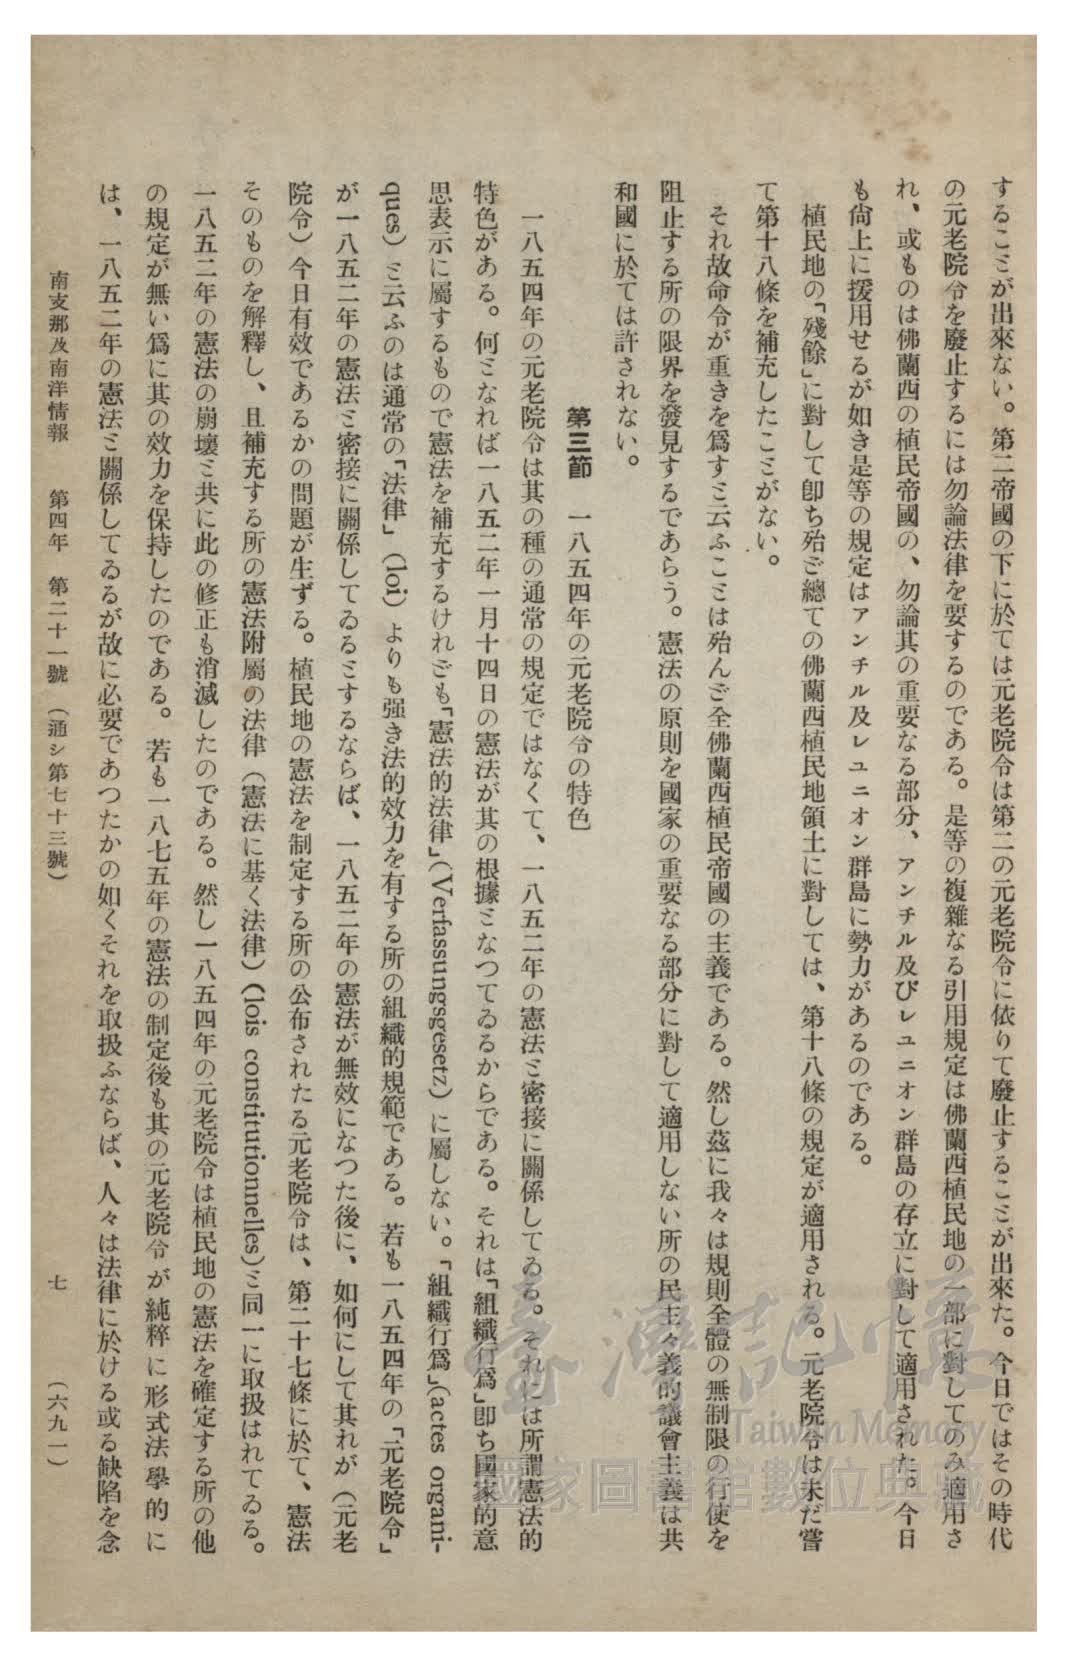 することが出來ない。第二帝國の下に於ては元老院令は第二の元老院令に依りて廢止することが出來た。今日ではその時代
の元老院令を廢止するには勿論法律を要するのである。是等の複雜なる引用規定は佛蘭西植民地の一部に對してのみ適用さ
れ、或ものは佛蘭西の植民帝國の、勿論其の重要なる部分、アンチル及びレユニオン群島の存立に對して適用された。今日
も尙上に援用せるが如き是等の規定はアンチル及レユニオン群島に勢力があるのである。
植民地の「殘餘」に對して卽ち殆ど總ての佛蘭西植民地領土に對しては、第十八條の規定が適用される。元老院令は未だ嘗
て第十八條を補充したことがない。
それ故命令が重きを爲すと云ふことは殆んど全佛蘭西植民帝國の主義である。然し玆に我々は規則全體の無制限の行使を
阻止する所の限界を發見するであらう。憲法の原則を國家の重要なる部分に對して適用しない所の民主々義的議會主義は共
和國に於ては許されない。
第三節　一八五四年の元老院令の特色
一八五四年の元老院令は其の種の通常の規定ではなくて、一八五二年の憲法と密接に關係してゐる。それには所謂憲法的
特色がある。何となれば一八五二年一月十四日の憲法が其の根據となつてゐるからである。それは「組織行爲」卽ち國家的意
思表示に屬するもので憲法を補充するけれども「憲法的法律」(Verfassungsgesetz) に屬しない。「組織行爲」(actes organi-
ques) と云ふのは通常の「法律」(loi) よりも强き法的效力を有する所の組織的規範である。若も一八五四年の「元老院令」
が一八五二年の憲法と密接に關係してゐるとするならば、一八五二年の憲法が無效になつた後に、如何にして其れが（元老
院令）今日有效であるかの問題が生ずる。植民地の憲法を制定する所の公布されたる元老院令は、第二十七條に於て、憲法
そのものを解釋し、且補充する所の憲法附屬の法律（憲法に基く法律）(lois constitutionnelles)と同一に取扱はれてゐる。
一八五二年の憲法の崩壞と共に此の修正も消滅したのである。然し一八五四年の元老院令は植民地の憲法を確定する所の他
の規定が無い爲に其の效力を保持したのである。若も一八七五年の憲法の制定後も其の元老院令が純粹に形式法學的に
は、一八五二年の憲法と關係してゐるが故に必要であつたかの如くそれを取扱ふならば、人々は法律に於ける或る缺陷を念
南支那及南洋情報　第四年　第二十一號（通シ第七十三號）　七　（六九一）
臺灣記憶
Taiwan Memory
國家圖書館數位典藏